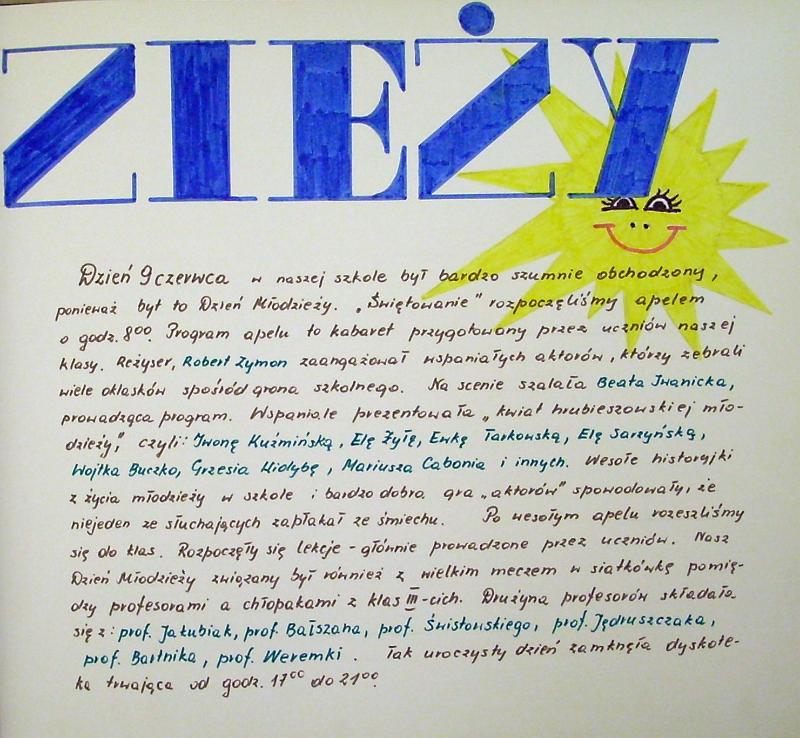 ZIEŻY
Dzień 9 czerwca w naszej szkole był bardzo szumnie obchodzony,
ponieważ był to Dzień Młodzieży. „Świętowanie" rozpoczęliśmy apelem
o godz. 8⁰⁰. Program apelu to kabaret przygotowany przez uczniów naszej
klasy. Reżyser, Robert Zymon zaangażował wspaniałych aktorów, którzy zebrali
wiele oklasków spośród grona szkolnego. Na scenie szalała Beata Iwanicka,
prowadząca program. Wspaniale prezentowała „kwiat hrubieszowskiej mło-
dzieży", czyli: Iwonę Kuźmińską, Elę Żyłę, Ewkę Tarkowską, Elę Sarzyńską,
Wojtka Buczko, Grzesia Widybę, Mariusza Cabonia i innych. Wesołe historyjki
z życia młodzieży w szkole i bardzo dobra gra „aktorów" spowodowały, że
niejeden ze słuchających zapłakał ze śmiechu. Po wesołym apelu rozeszliśmy
się do klas. Rozpoczęły się lekcje - głównie prowadzone przez uczniów. Nasz
Dzień Młodzieży związany był również z wielkim meczem w siatkówkę pomię-
dzy profesorami a chłopakami z klas III-cich. Drużyna profesorów składała
się z: prof. Jakubiak, prof. Bałszana, prof. Świstowskiego, prof. Jędruszczaka,
prof. Bartnika, prof. Weremki. Tak uroczysty dzień zamknęła dyskote-
ka trwająca od godz. 17⁰⁰ do 21⁰⁰.